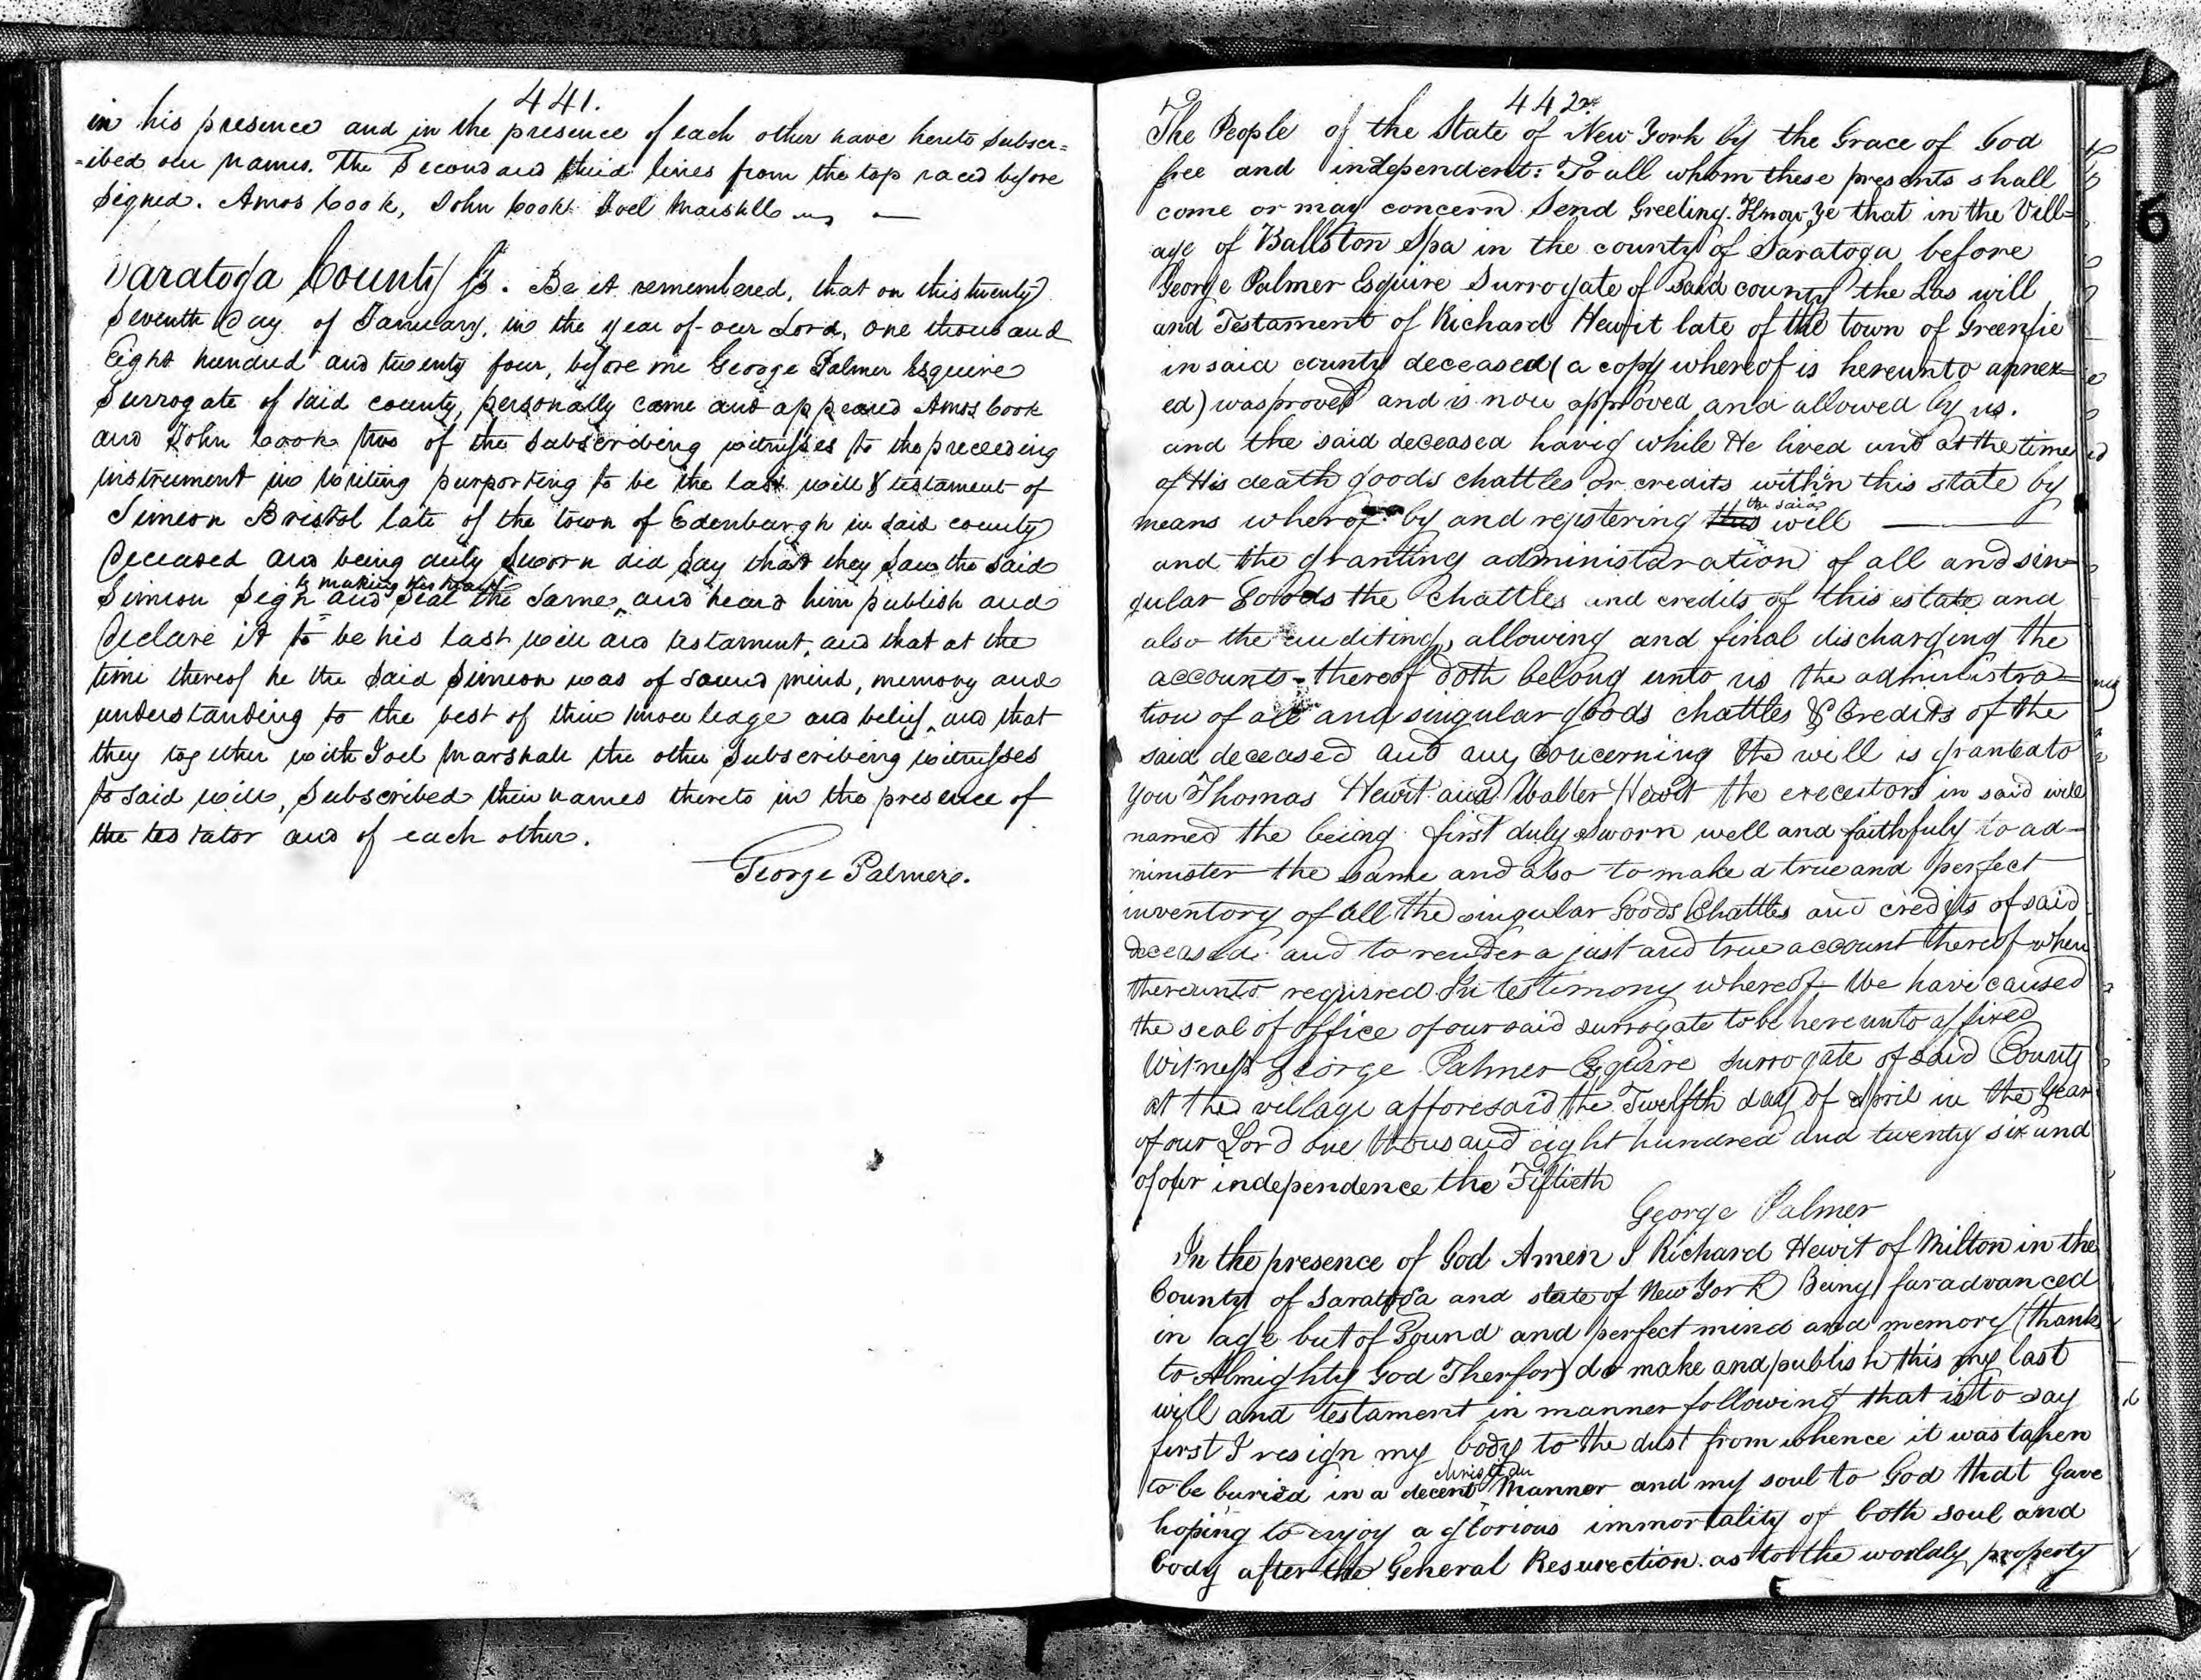 441.
in his presence and in the presence of each other have hereto subscr=
=ibed our names. The Second and third lines from the top raced before
signed. Amos Cook, John Cook Joel Marshall
Saratoga County ss. Be it remembered, that on this twenty
seventh day of January, in the year of our Lord, one thousand
Eight hundred and twenty four, before me George Palmer Esquire
Surrogate of said county, personally came and appeared Amos Cook
and John Cook two of the subscribing witnesses to the preceeding
instrument in writing purporting to be the last will & testament of
Simeon Bristol late of the town of Edenburgh in said county
deceased and being duly sworn did say that they saw the said
by making his mark
Simeon sign and seal the same, and heard him publish and
declare it to be his last will and testament, and that at the
time thereof he the said Simeon was of sound mind, memory and
understanding to the best of their knowledge and belief, and that
they together with Joel Marshall the other subscribing witnesses
to said will, subscribed their names thereto in the presence of
the testator and of each other.
George Palmer.
442
The People of the State of New York by the Grace of God
free and independent: To all whom these presents shall
come or may concern Send Greeting. Know Ye that in the Vill=
age of Ballston Spa in the county of Saratoga before
George Palmer Esquire Surrogate of said county the Las will
and Testament of Richard Hewit late of the town of Greenfie
in said county deceased (a copy whereof is hereunto annex=
ed) was proved and is now approved and allowed by us.
and the said deceased havig while He lived and at the time
of His death goods chattles or credits within this state by
the said
means wherof by and registering this will
and the granting administaration of all and sin-
gular Goods the Chattles and credits of this estate and
also the auditing, allowing and final discharging the
accounts thereof doth belong unto us the administra=
tion of all and singular goods chattles & Credits of the
said deceased and any concerning the will is granted to
you Thomas Hewit and Walter Hewit the executors in said will
named the being first duly sworn well and faithfuly to ad-
minister the same and also to make a true and perfect
inventory of all the singular Goods Chattles and credits of said
deceased and to render a just and true account thereof when
thereunto required In testimony whereof We have caused
the seal of office of our said surrogate to be hereunto affixed
Witness George Palmer Esquire surrogate of said County
at the village afforesaid the Twelfth day of April in the year
of our Lord one thousand eight hundred and twenty six and
of our independence the Fiftieth
George Palmer
In the presence of God Amen I Richard Hewit of Milton in the
County of Saratoga and state of New York Being far advanced
in age but of Sound and perfect mind and memory (thanks
to Almighty God Therfor) do make and publish this my last
will and testament in manner following that is to say
first I resign my body to the dust from whence it was taken
christian
to be buried in a decent Manner and my soul to God that Gave
hoping to enjoy a glorious immortality of both soul and
body after the General Resurection. as to the worldly property